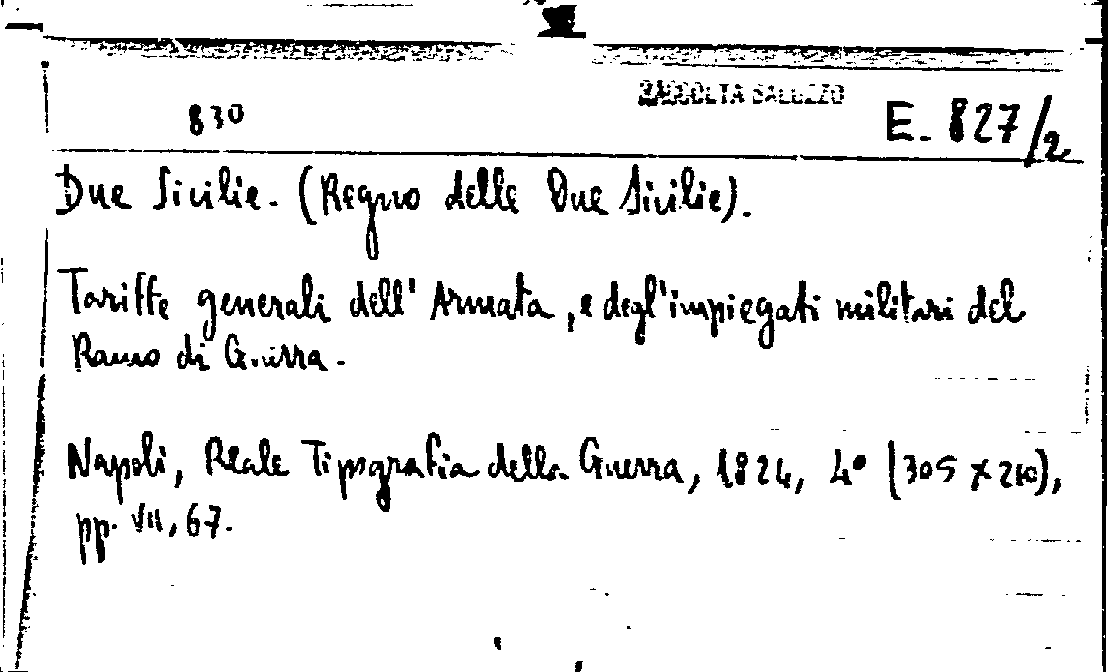 RACCOLTA SALUZZO
830
E. 827/2
Due Sicilie. (Regno delle Due Sicilie).
Tariffe generali dell' Armata, e degl'impiegati militari del
Ramo di Guerra.
Napoli, Reale Tipografia della Guerra, 1824, 4° (305 x 210),
pp. VII, 67.